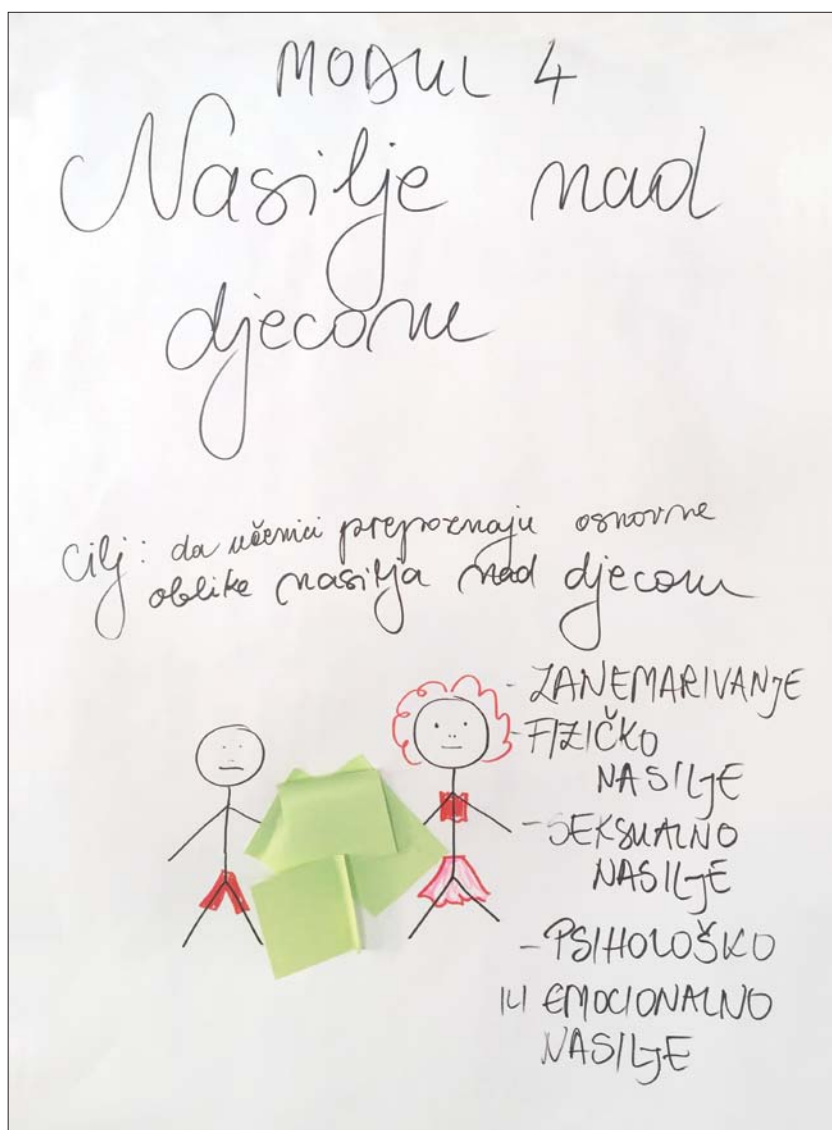 MODUL 4
Nasilje nad
djecom
Cilj: da učenici prepoznaju osnovne
oblike nasilja nad djecom
- ZANEMARIVANJE
- FIZIČKO
NASILJE
- SEKSUALNO
NASILJE
- PSIHOLOŠKO
ILI EMOCIONALNO
NASILJE